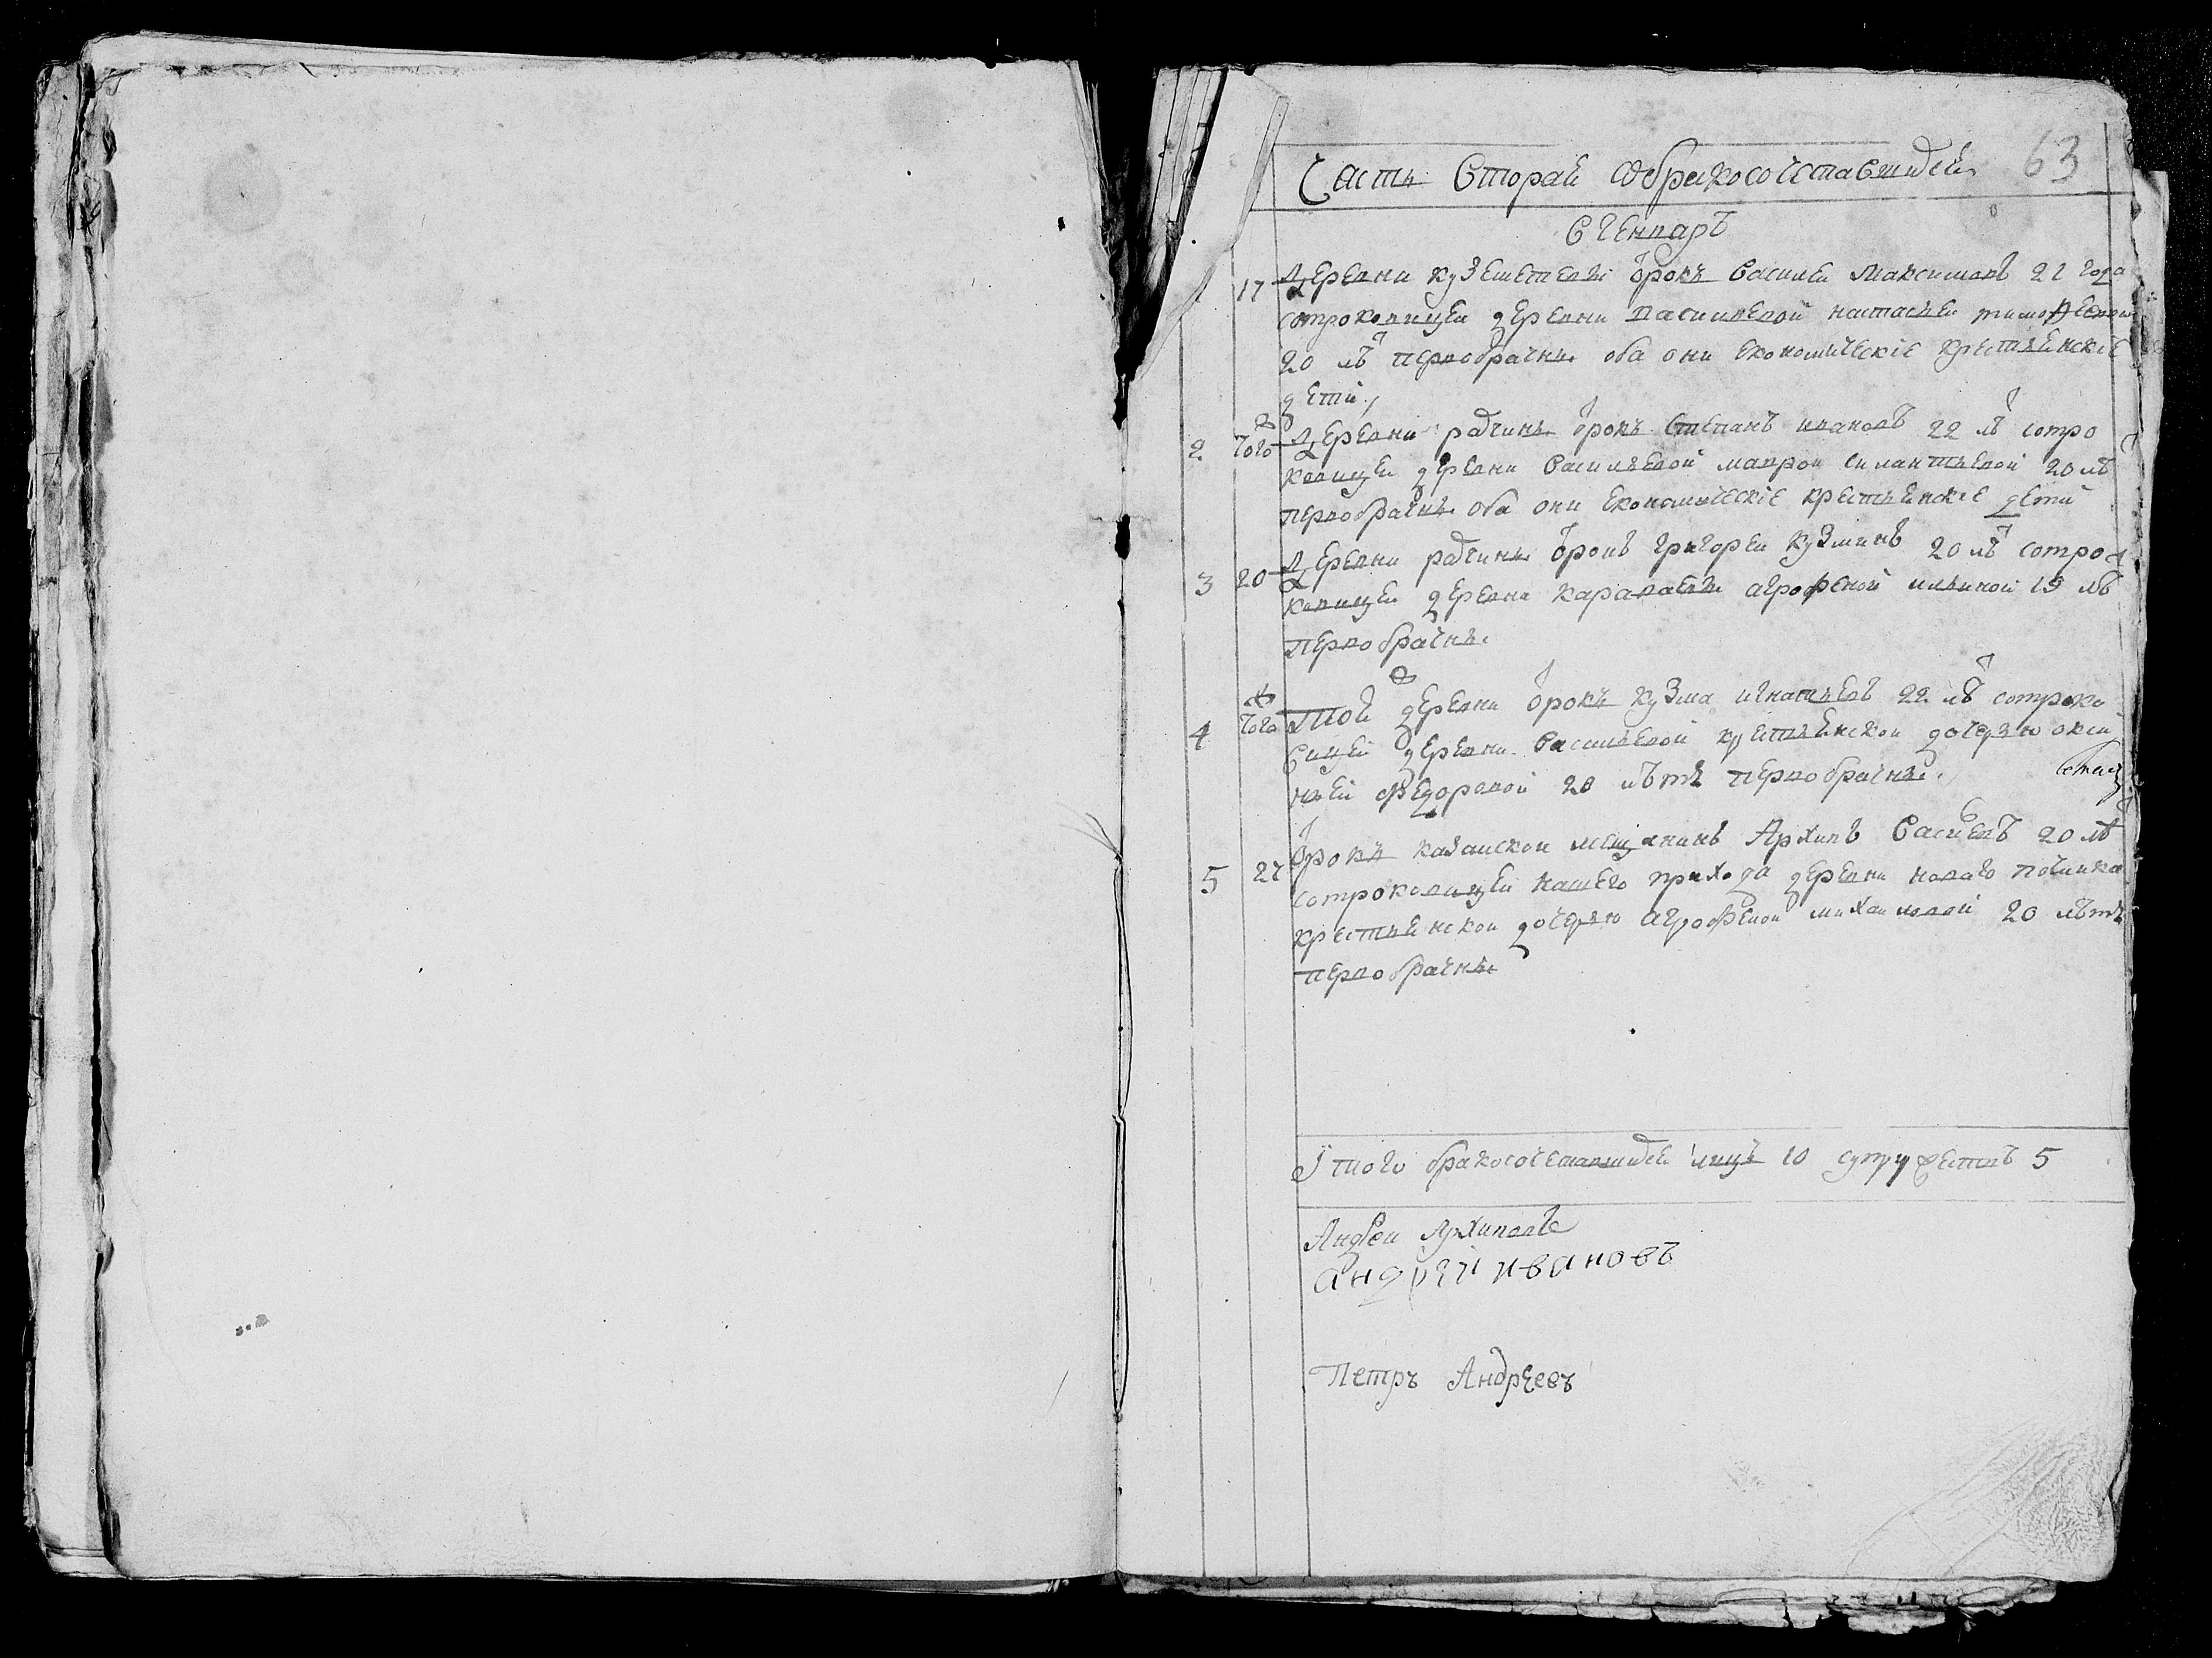 63
Часть вторая о бракосочетавшихся
В генваръ
17 Деревни отрокъ Василеи Максимовъ 21 года
сотроковицеи деревни Василевои настасьеи тимофеевои
20 лѣ первобрачны оба они економическiе крестьянскiе
дети
2 того Деревни отрокъ Степанъ ивановъ 22 лѣ сотро
ковицеи деревни Васильевои маврои силантьевои 20 лѣ
первобрачны оба они економическiе крестьянскiе дети
3 20 Деревни отрокъ григореи Кузминъ 20 лѣ сотро
ковицеи деревни караваевы агрофеной ильиной 19 лѣ
первобрачны
4 того той деревни отрокъ Кузма игнатьевъ 22 лѣ сотроко
вицеи деревни Василевои крестьянскои дочерью окси
ньеи федоровои 20 лѣтъ первобрачны
5 27 отрокъ казанскои мещанинъ Архипъ 20 лѣ
сотроковицеи нашего прихода деревни новаго починка
крестьянскои дочерью агрофенои михаиловои 20 лѣтъ
первобрачны
Iтого бракосочетавшихся лицъ 10 супружествъ 5
Андреи Архиповъ
андрей ивановъ
Петръ Андрѣевъ